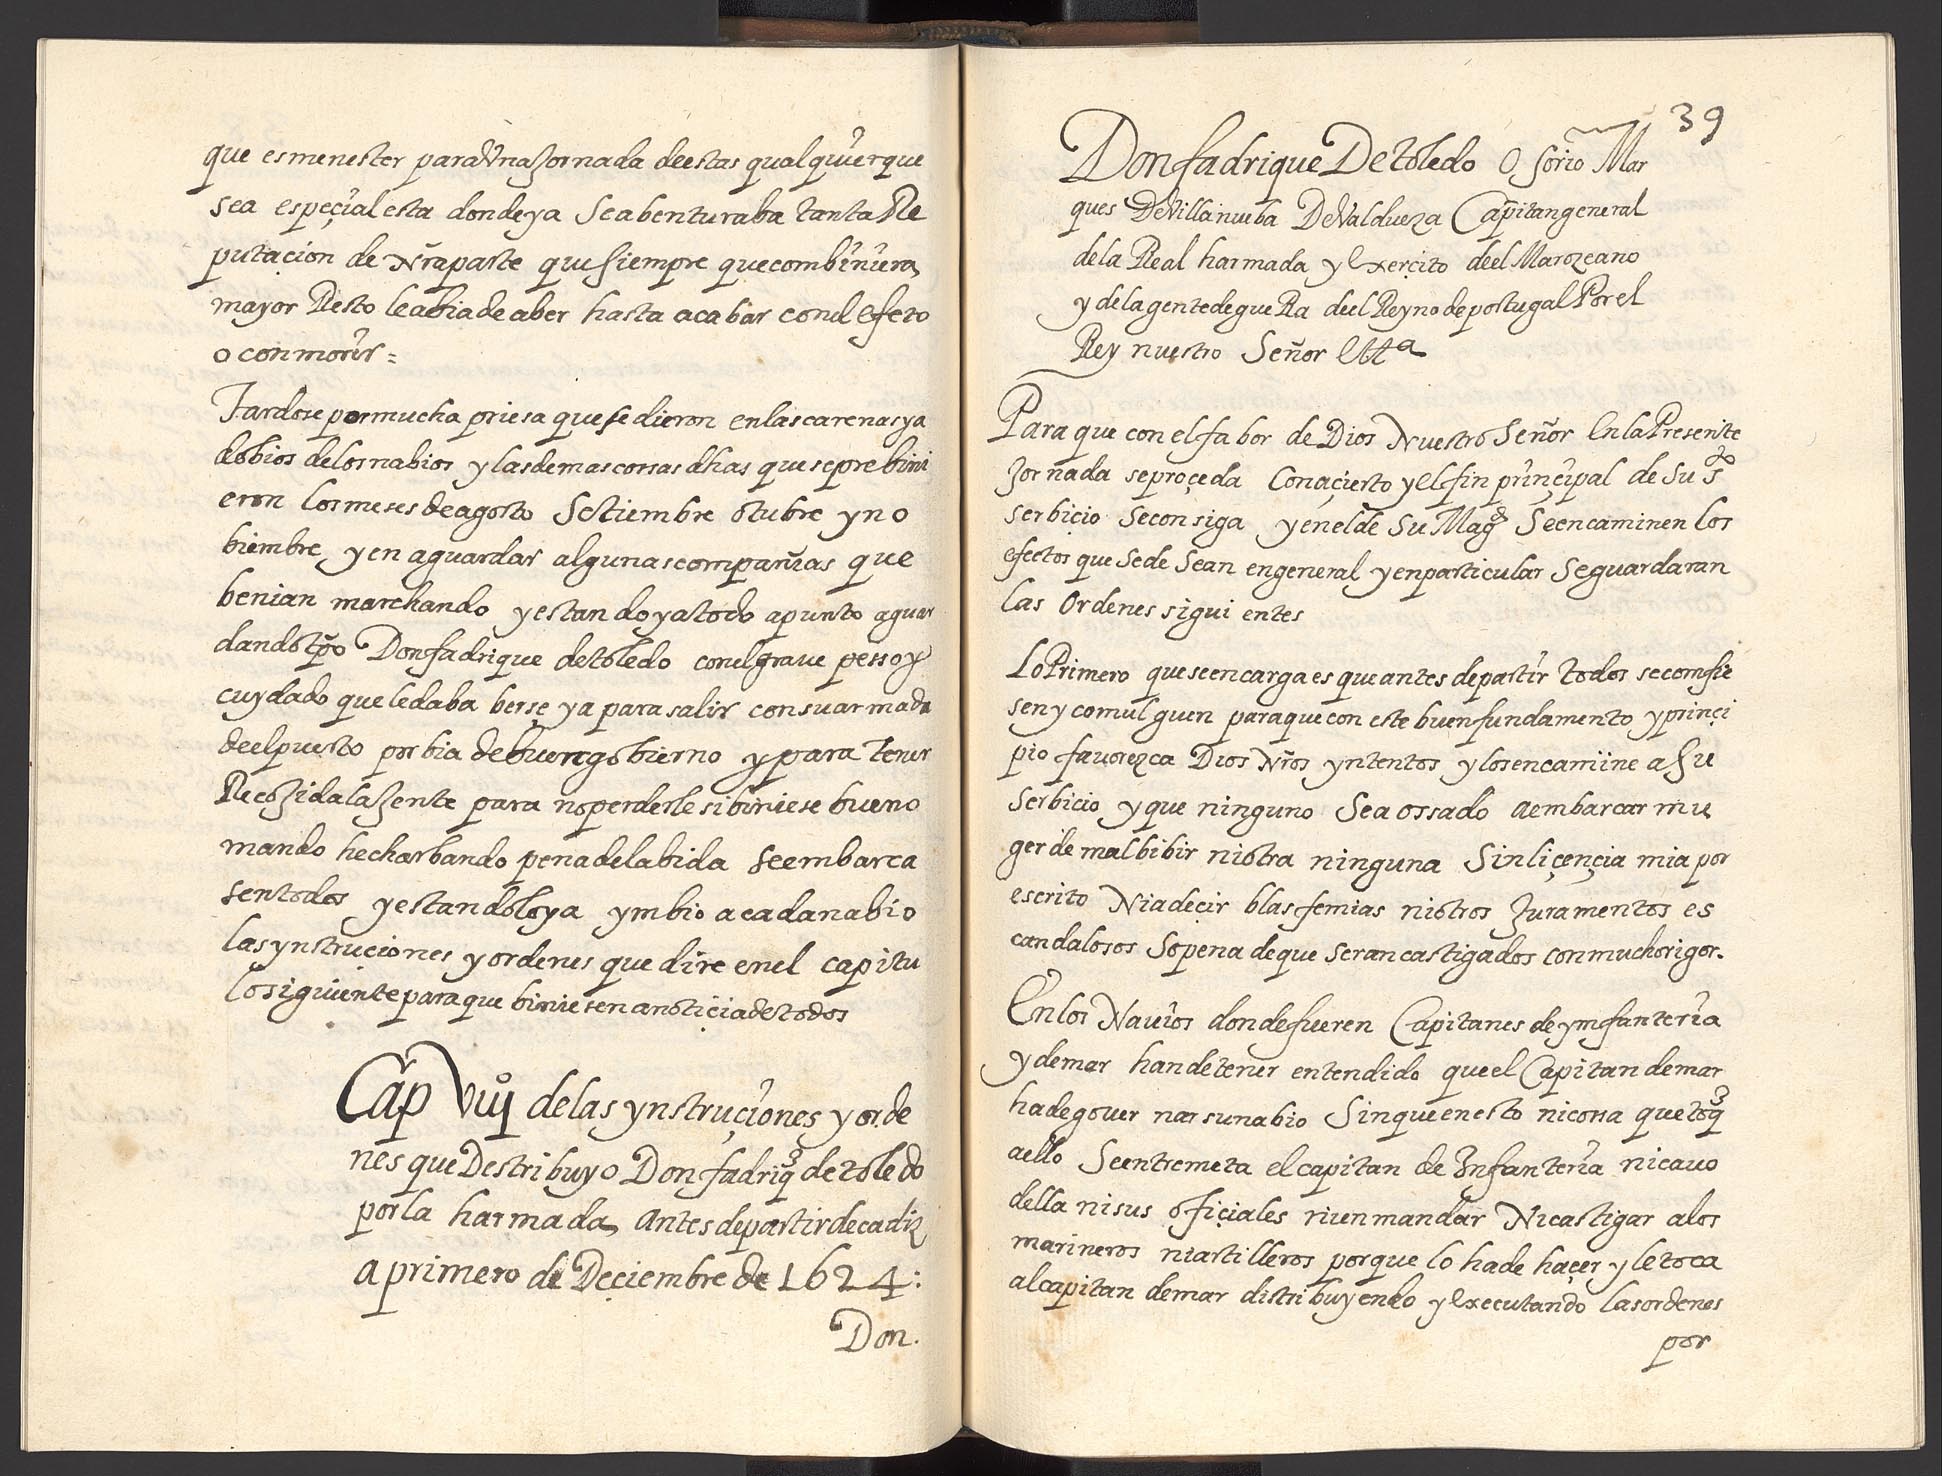 que es menester para Una Jornada de estas qual quier que
sea espeçial esta donde ya Se abenturaba tanta Re
putaçion de Nrã parte que siempre que combiniera
mayor Resto le abia de aber hasta acabar con el efeto
o con morir =
Tardose por mucha priesa que se dieron en las carenas y a
dobios de los nabios y las demas cossas dhas que se prebini
eron los meses de agosto Setiembre otubre y no
biembre y en aguardar algunas compañias que
benian marchando y estando ya todo a punto aguar
dando tpõ Don fadrique de toledo con el grave pesso y
cuydado que le daba berse ya para salir con su armada
de el puesto por bia de buen gobierno y para tener
Recojida la Jente para no perderle si biniese bueno
mando hechar bando pena de la bida se embarca
sen todos y estandolo ya ymbio a cada nabio
las ynstruciones y ordenes que dire en el capitu
lo siguiente para que biniesen a notiçia de todos
Cap VIIIº de las ynstruçiones y orde
nes que Destribuyo Don fadriq de toledo
por la harmada Antes de partir de cadiz
a primero de Deçiembre de 1624:
Don.
39
Don fadrique De toledo Osorio Mar
ques De Villanueba De Valdueza Capitan general
de la Real harmada y Exerçito de el Mar ozeano
y de la gente de gueRa de el Reyno de portugal Por el
Rey nuestro Señor Ettª
Para que con el fabor de Dios Nuestro Señor En la Presente
Jornada se proçeda Con açierto y el fin prinçipal de Su sto
serbicio Se consiga y en el de Su Magd Se encaminen los
efectos que Se deSean en general y en particular Se guardaran
las Ordenes siguientes
Lo Primero que se encarga es que antes de partir todos se comfie
sen y comulguen para que con este buen fundamento y prinçi
pio favorezca Dios Nrõs yntentos y los encamiine a Su
serbicio y que ninguno Sea ossado a embarcar mu
ger de mal bibir ni otra ninguna Sin liçençia mia por
escrito Ni a deçir blasfemias ni otros Juramentos es
candalosos So pena de que seran castigados con mucho rigor.
En los Navios donde fueren Capitanes de ymfanteria
y de mar han de tener entendido que el Capitan de mar
ha de governar su nabio Sin que en esto ni cossa que toq
a ello Se entremeta el capitan de Infanteria ni cavo
della ni sus ofiçiales ni en mandar Ni castigar a los
marineros ni artilleros porque lo ha de haçer y le toca
al capitan de mar distribuyendo y Executando las ordenes
por